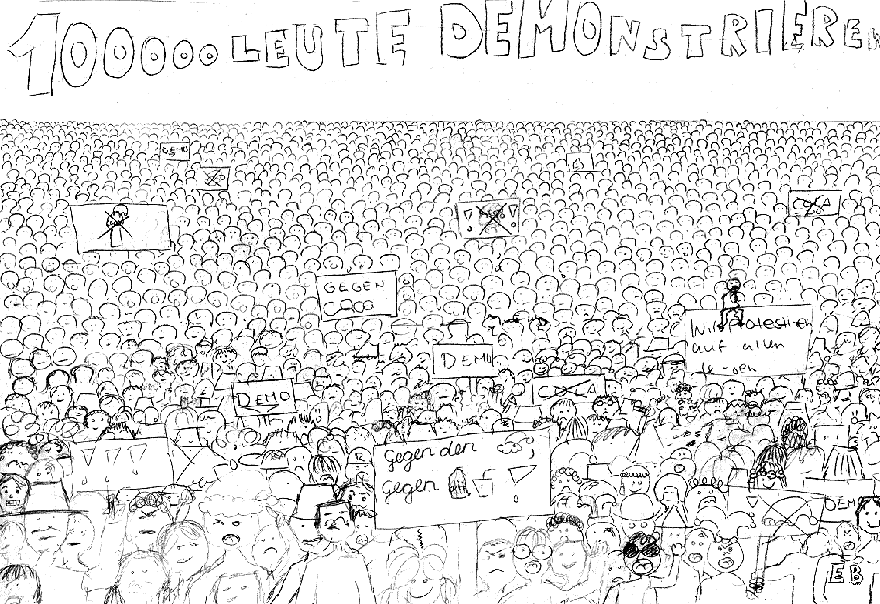 100000 LEUTE DEMONSTRIEREN
COLA
GEGEN
Wir protestieren
auf allen
DEMO
DEMO
COLA
gegen den
gegen
DEMO
EB